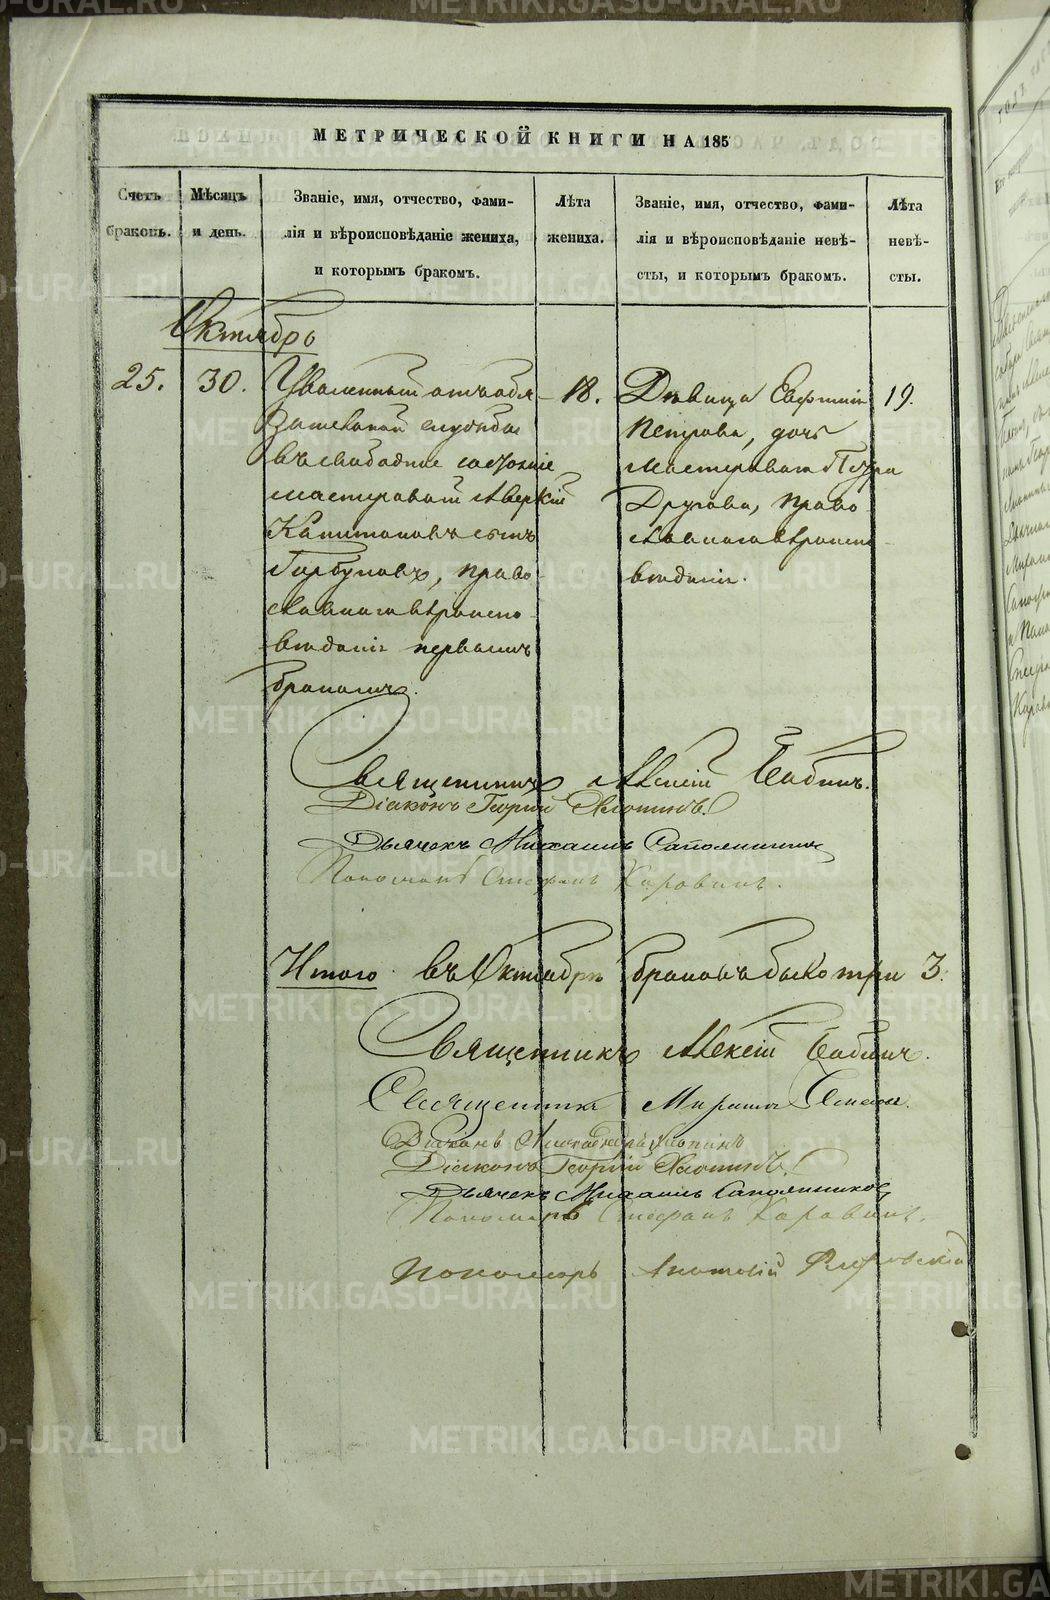 МЕТРИЧЕСКОЙ КНИГИ НА 185
Счетъ браковъ.
Мѣсяцъ и день.
Званіе, имя, отчество, фами-
лія и вѣроисповѣданіе жениха,
и которымъ бракомъ.
Лѣта
жениха.
Званіе, имя, отчество, фами-
лія и вѣроисповѣданіе невѣ-
сты, и которымъ бракомъ.
Лѣта
невѣ-
сты.
Октябрь
25.
30.
Уволенный отъ обя-
зательной службы
въ свободное состояніе
мастеровой Аверкій
Капитоновъ сынъ
Горбуновъ, право-
славнаго вѣроиспо-
вѣданія первымъ
бракомъ.
18.
Дѣвица Евфимія
Петрова, дочь
мастероваго Петра
Другова, право
славнаго вѣроиспо-
вѣданія.
19.
Священникъ Алексій Бабинъ.
Діаконъ Георгій Хлопинъ.
Дьячекъ Михаилъ Сапожников
Пономарь Стефанъ Коровинъ.
Итого въ Октябрѣ браковъ было три 3.
Священникъ Алексій Бабинъ.
Священникъ
Діаконъ
Діаконъ Георгій Хлопинъ.
Дьячекъ Михаилъ Сапожников
Пономарь Стефанъ Коровинъ.
Пономарь
METRIKI.GASO-URAL.RU